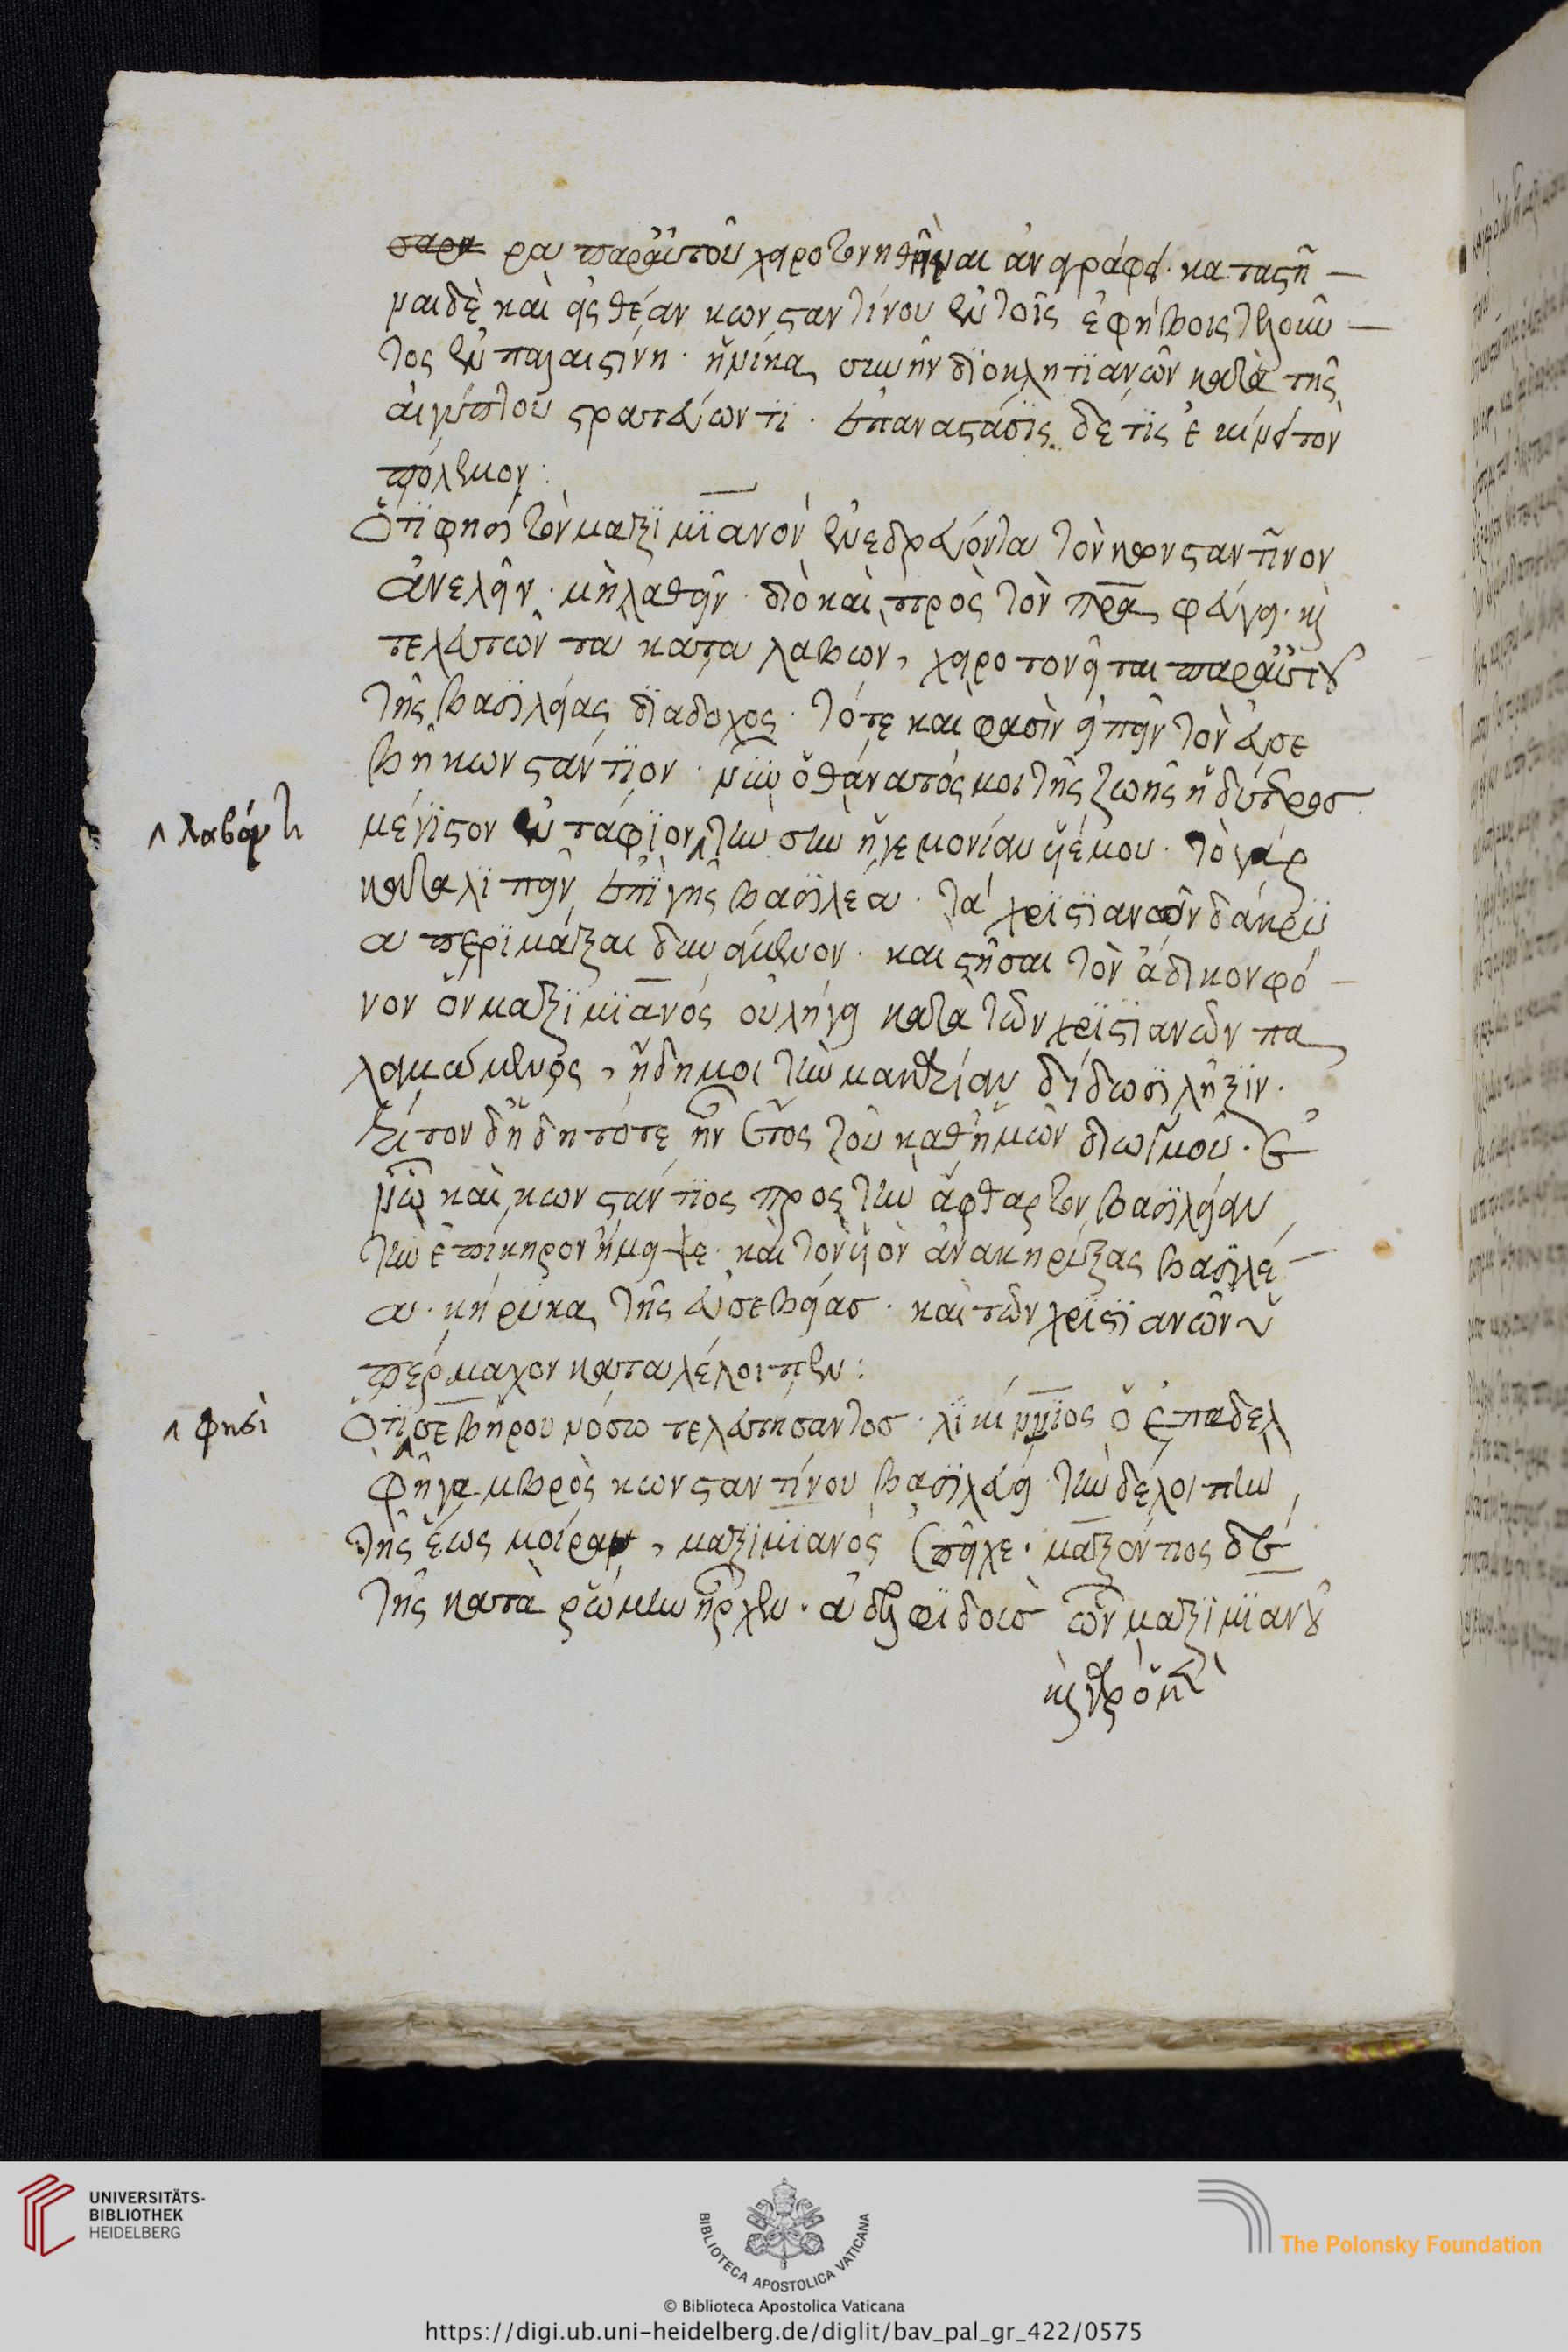 ρα παραὐτοῦ χειροτονηθῆναι ἀναγράφει· καταστῆ
ναι δὲ καὶ εἰς θέαν κωνσταντίνου ἐν τοῖς ἐφήβοις τελοῦν
τος ἐν παλαιστίνη· ἡνίκα συνῆν διοκλητιανῶ κατὰ τῆς
αἰγύπτου στρατεύοντι· ἐπανάστασις δέ τις ἐκίνει τὸν
πόλεμον:
Ὅτι φησὶ τὸν μαξιμιανὸν ἐνεδρεύοντα τὸν κωνσταντῖνον
ἀνελεῖν· μὴ λαθεῖν· διὸ καὶ πρὸς τὸν πρα φεύγει· κ
τελευτῶντα καταλαβὼν, χειροτονεῖται παραὐτοῦ
τῆς βασιλείας διάδοχος· τότε καὶ φασὶν εἰπεῖν τὸν εὐσε
βῆ κωνστάντιον· νῦν ὁ θάνατός μοι τῆς ζωῆς ἡδύτερος
∧ λαβόντι
μέγιστον ἐντάφιον∧τὴν σὴν ἡγεμονίαν υἱέ μου· τὸ γὰρ
καταλιπεῖν ἐπὶ γῆς βασιλέα· τὰ χριστιανῶν δάκρυ
α περιμάξαι δυνάμενον· καὶ στῆσαι τὸν ἄδικον φό
νον ὃν μαξιμιανός οὐ λήγει κατὰ τῶν χριστιανῶν πα
λαμώμενος, ἤδη μοι τὴν μακαρίαν δίδωσι λῆξιν·
τρίτον δὴ δήποτε ἦν ἔτος τοῦ καθ ἡμῶν διωγμοῦ·
καὶ κωνστάντιος πρὸς τὴν ἄφθαρτον βασιλείαν
τὴν ἐπίκηρον ἤμειψε· καὶ τὸν υἱὸν ἀνακηρύξας βασιλέ
α· κήρυκα τῆς εὐσεβείας· καὶ τῶν χριστιανῶν ὑ
πέρμαχον καταλέλοιπεν:
∧ φησὶ
Ὅτι∧σεβήρου νόσω τελευτήσαντος· λικίννιος ὁ ἐπαδελ
φῆ γαμβρὸς κωνσταντίνου βασιλεύει τὴν δὲ λοιπὴν
τῆς ἕως μοίραν, μαξιμιανός ἐπεῖχε· μαξέντιος δὲ
τῆς κατὰ ῥώμην ἦρχεν· ἀδελφιδοῖς ὢν μαξιμιανοῦ

UNIVERSITÄTS-
BIBLIOTHEK
HEIDELBERG
BIBLIOTECA APOSTOLICA VATICANA
The Polonsky Foundation
© Biblioteca Apostolica Vaticana
https://digi.ub.uni-heidelberg.de/diglit/bav_pal_gr_422/0575